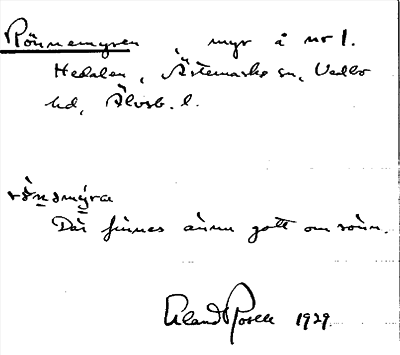 Rönnemyren, myr å nr 1.
Hedalen, Ärtemarks sn, Vedbo
hd, Älvsb. l.
rönəmýra
Där finnes ännu gott om rönn.
Erland Rosell 1929.